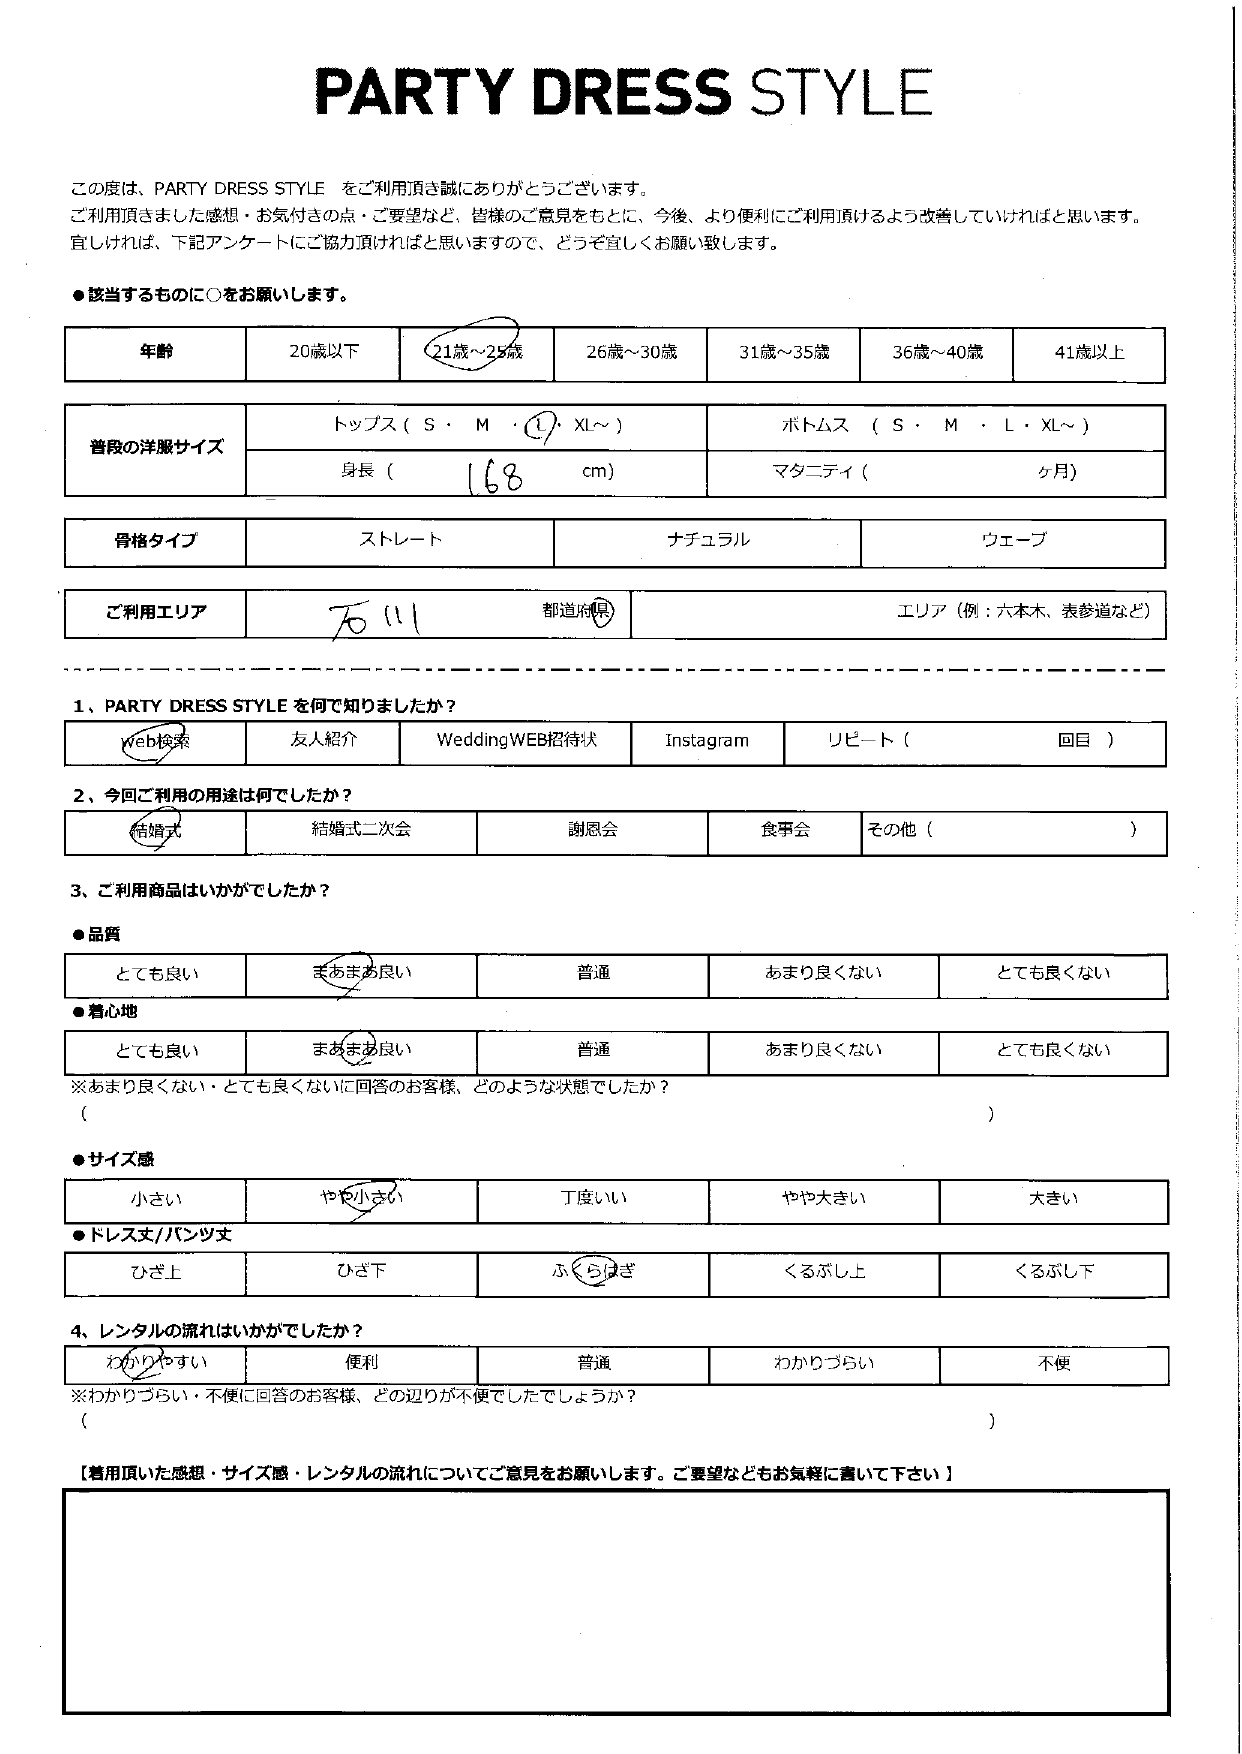 PARTY DRESS STYLE
この度は、PARTY DRESS STYLE をご利用頂き誠にありがとうございます。
ご利用頂きました感想・お気付きの点・ご要望など、皆様のご意見をもとに、今後、より便利にご利用頂けるよう改善していければと思います。
宜しければ、下記アンケートにご協力頂ければと思いますので、どうぞ宜しくお願い致します。
●該当するものに○をお願いします。
年齢 20歳以下 21歳～25歳 26歳～30歳 31歳～35歳 36歳～40歳 41歳以上
普段の洋服サイズ トップス ( S ・ M ・ L ・ XL～ ) ボトムス ( S ・ M ・ L ・ XL～ )
身長 ( 168 cm) マタニティ ( ヶ月)
骨格タイプ ストレート ナチュラル ウェーブ
ご利用エリア 石川 都道府県 エリア（例：六本木、表参道など）
1、PARTY DRESS STYLE を何で知りましたか？
Web検索 友人紹介 WeddingWEB招待状 Instagram リピート ( 回目 )
2、今回ご利用の用途は何でしたか？
結婚式 結婚式二次会 謝恩会 食事会 その他 ( )
3、ご利用商品はいかがでしたか？
●品質
とても良い まあまあ良い 普通 あまり良くない とても良くない
●着心地
とても良い まあまあ良い 普通 あまり良くない とても良くない
※あまり良くない・とても良くないに回答のお客様、どのような状態でしたか？
( )
●サイズ感
小さい やや小さい 丁度いい やや大きい 大きい
●ドレス丈/パンツ丈
ひざ上 ひざ下 ふくらはぎ くるぶし上 くるぶし下
4、レンタルの流れはいかがでしたか？
わかりやすい 便利 普通 わかりづらい 不便
※わかりづらい・不便に回答のお客様、どの辺りが不便でしたでしょうか？
( )
【着用頂いた感想・サイズ感・レンタルの流れについてご意見をお願いします。ご要望などもお気軽に書いて下さい 】